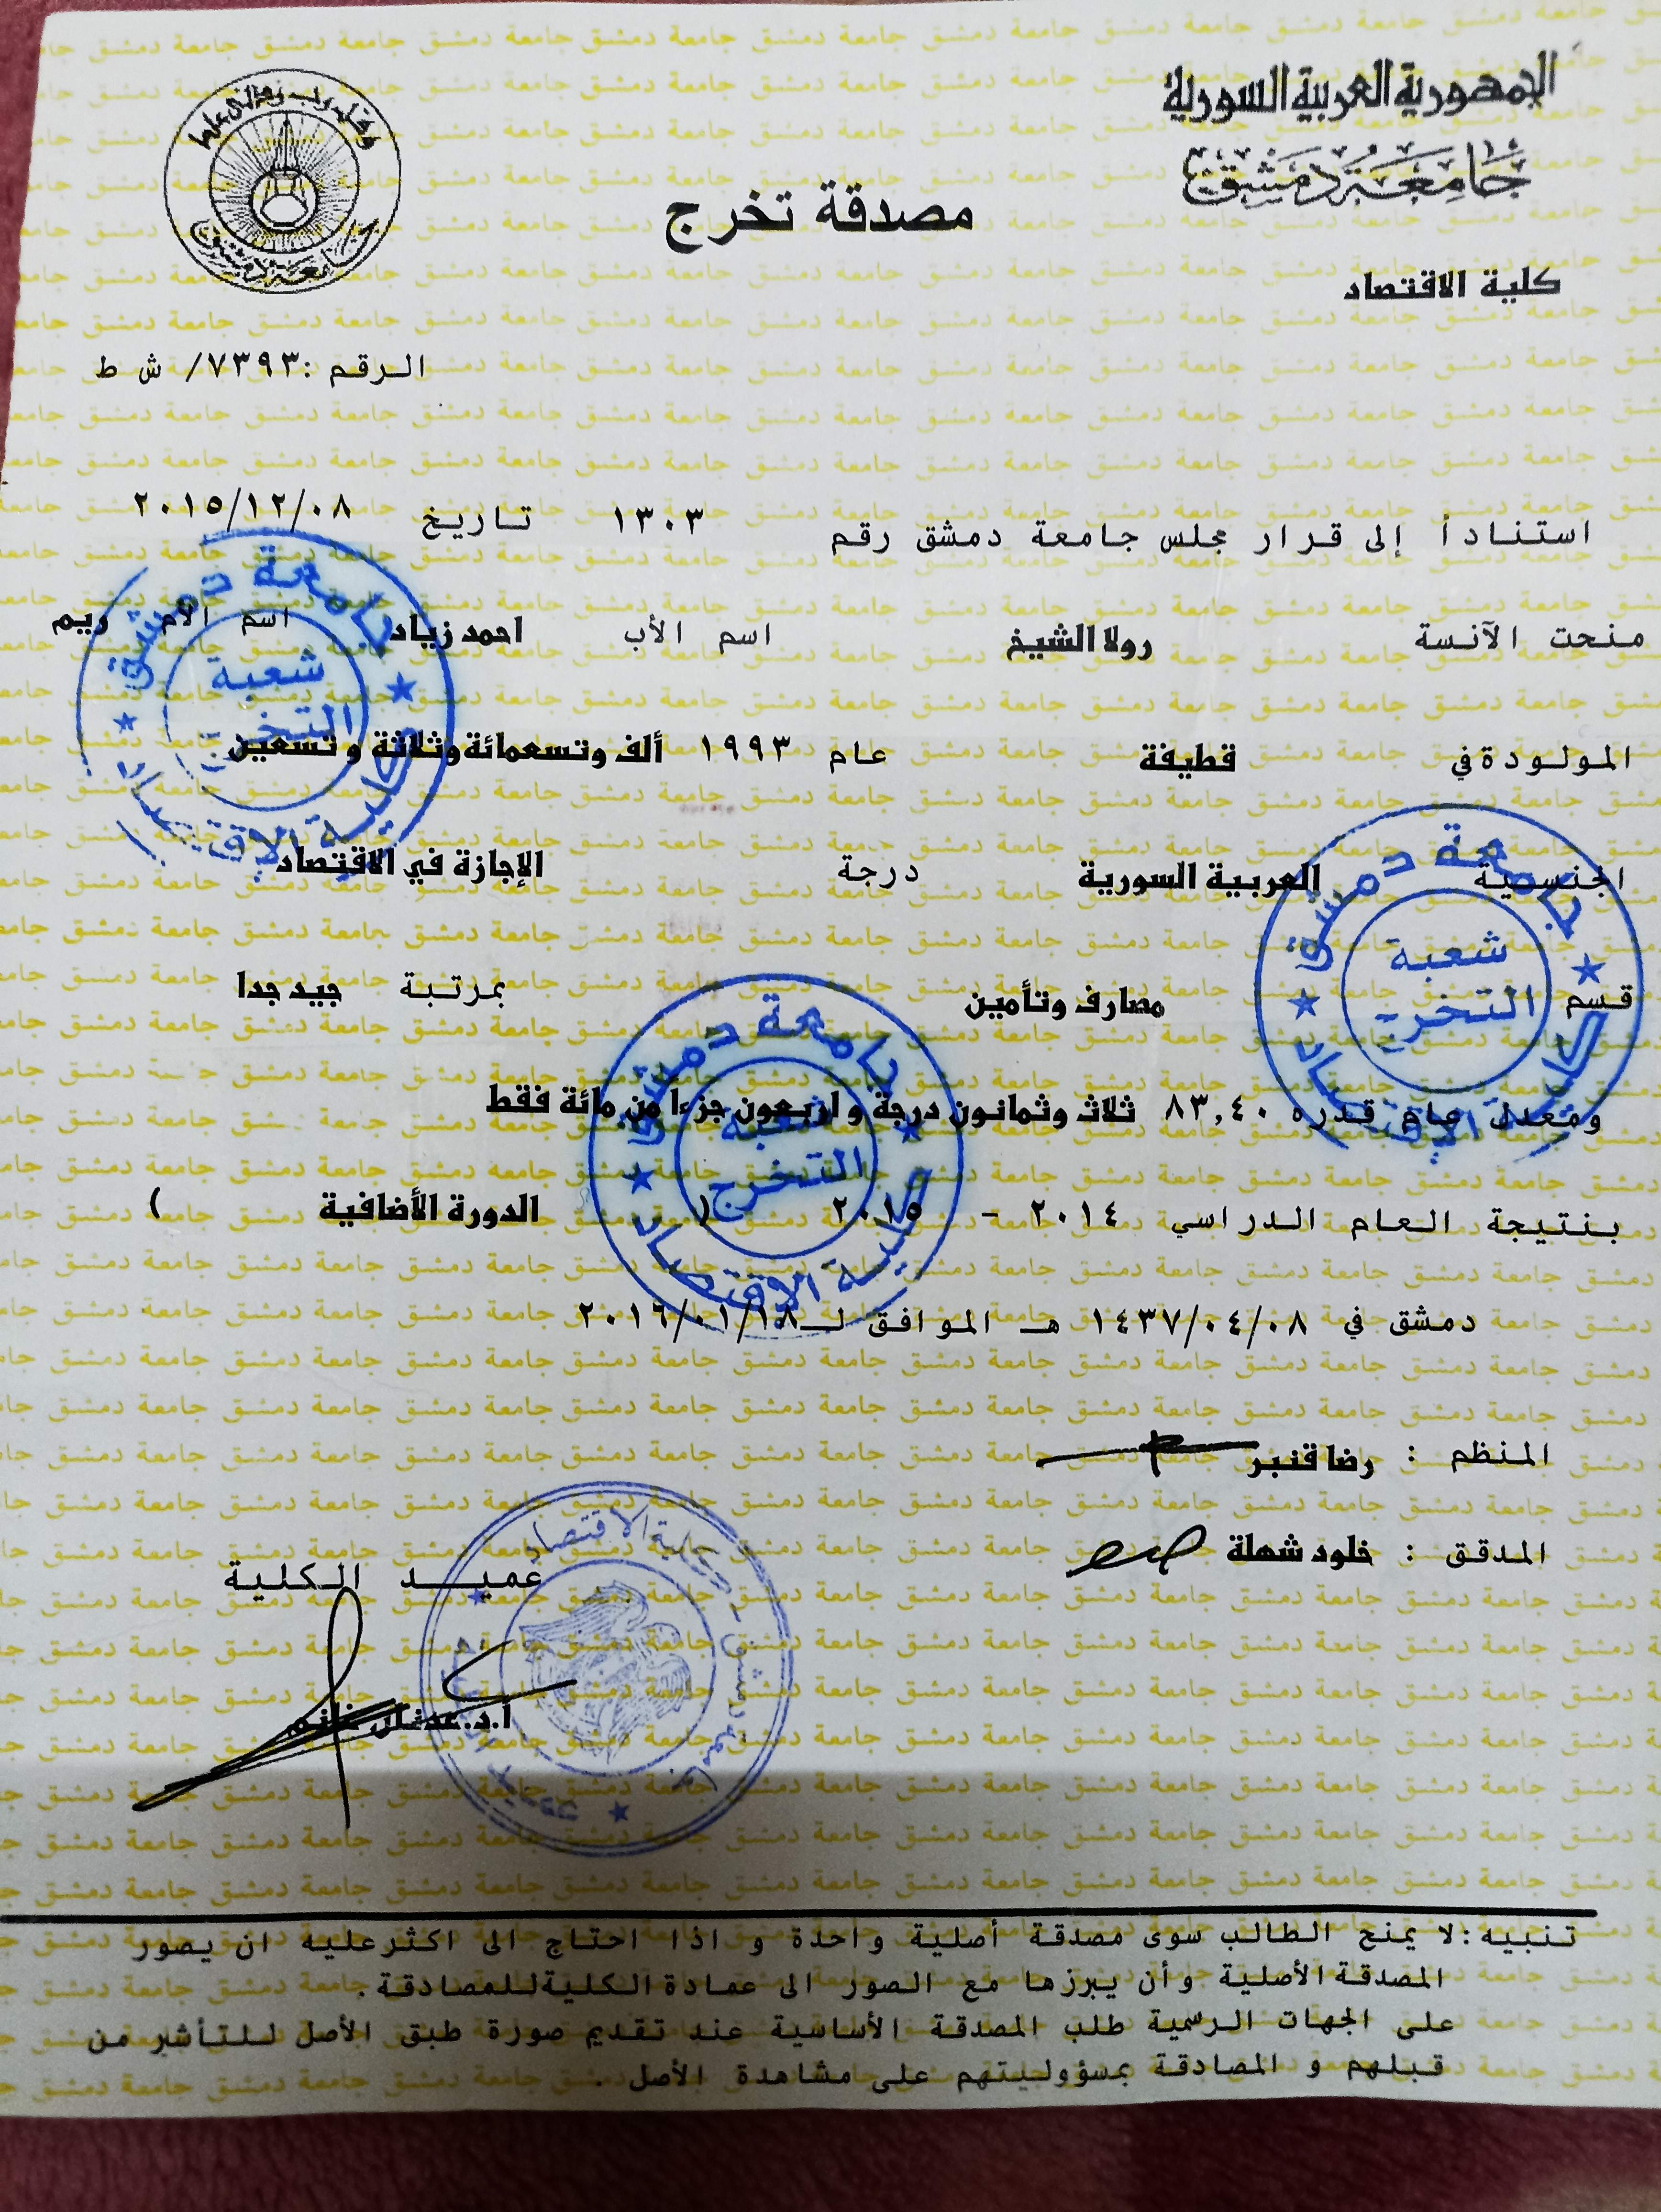 الجمهورية العربية السورية
جامعة دمشق
وقل رب زدني علما
جامعة دمشق
مصدقة تخرج
كلية الاقتصاد
الرقم :٧٣٩٣/ ش ط
استناداً إلى قرار مجلس جامعة دمشق رقم ١٣٠٣ تاريخ ٢٠١٥/١٢/٠٨
منحت الآنسة رولا الشيخ اسم الأب احمد زياد اسم الأم ريم
المولودة في قطيفة عام ١٩٩٣ ألف وتسعمائة وثلاثة وتسعين
الجنسية العربية السورية درجة الإجازة في الاقتصاد
قسم مصارف وتأمين بمرتبة جيد جدا
ومعدل عام قدره ٨٣,٤٠ ثلاث وثمانون درجة و اربعون جزءا من مائة فقط
بنتيجة العام الدراسي ٢٠١٤ - ٢٠١٥ ( الدورة الأضافية )
دمشق في ١٤٣٧/٠٤/٠٨ هـ الموافق لـ ٢٠١٦/٠١/١٨
المنظم : رضا قنبر
المدقق : خلود شهلة
عميد الكلية
أ.د. عدنان غانم
جامعة دمشق
شعبة
التخرج
كلية الاقتصاد
جامعة دمشق
شعبة
التخرج
كلية الاقتصاد
جامعة دمشق
شعبة
التخرج
كلية الاقتصاد
جامعة دمشق - كلية الاقتصاد
تنبيه : لا يمنح الطالب سوى مصدقة أصلية واحدة و اذا احتاج الى اكثر عليه ان يصور
المصدقة الأصلية وأن يبرزها مع الصور الى عمادة الكلية للمصادقة .
على الجهات الرسمية طلب المصدقة الأساسية عند تقديم صورة طبق الأصل للتأشير من
قبلهم و المصادقة بمسؤوليتهم على مشاهدة الأصل .